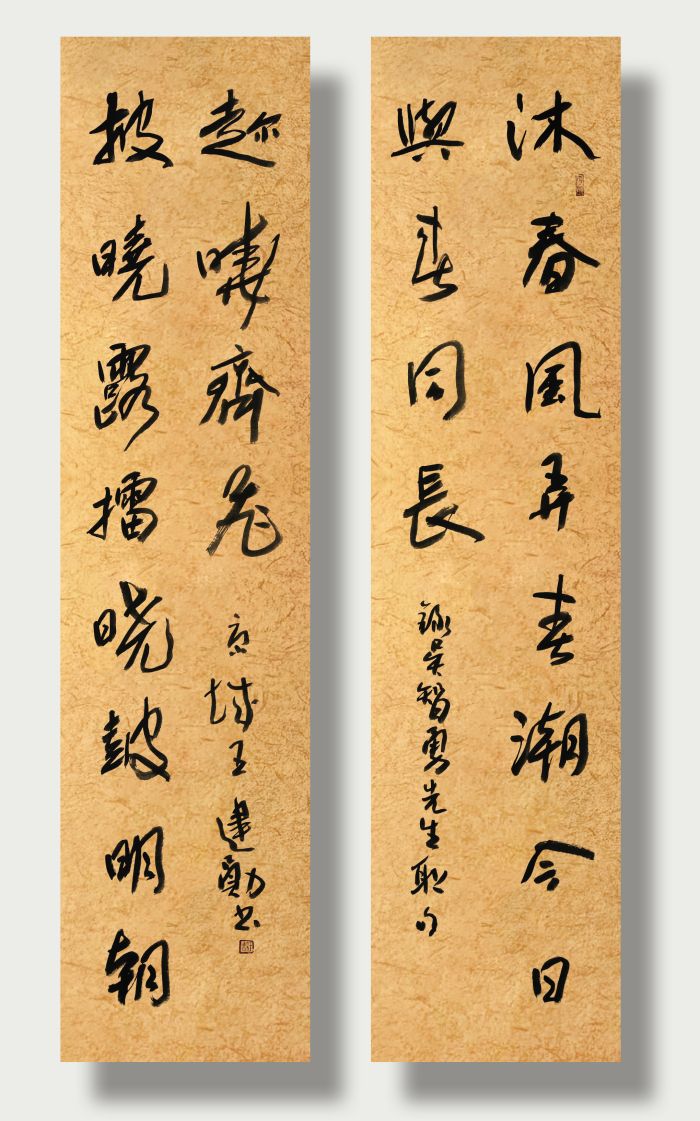 沐春風弄春潮今日
與春同長
錄吳智勇先生联句
披曉露擂晓鼓明朝
趂曉齊
京城王建勛书